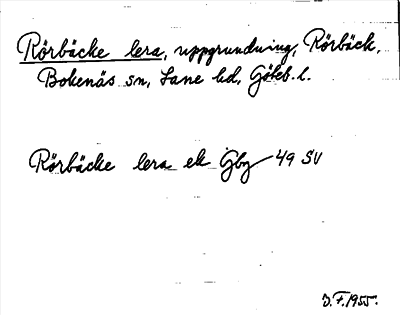 Rörbäcke lera, uppgrundning, Rörbäck,
Bokenäs sn, Lane hd, Göteb. l.
Rörbäcke lera ek Gbg 49 SV
J. F. 1955.